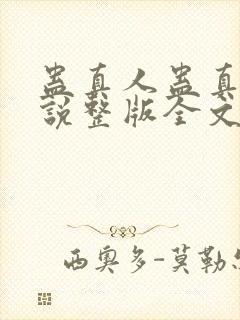 蛊真人蛊真
說整版全文
西奥多-莫勒